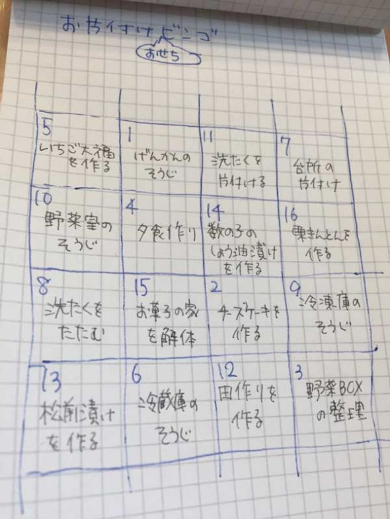 お片付けビンゴ
おせち
5
いちご大福
を作る
1
げんかんの
そうじ
11
洗たくを
片付ける
7
台所の
片付け
10
野菜室の
そうじ
4
夕食作り
14
数の子の
しょう油漬け
を作る
16
栗きんとんを
作る
8
洗たくを
たたむ
15
お菓子の家
を解体
2
チーズケーキを
作る
9
冷凍庫の
そうじ
13
松前漬け
を作る
6
冷蔵庫の
そうじ
12
田作りを
作る
3
野菜BOX
の整理